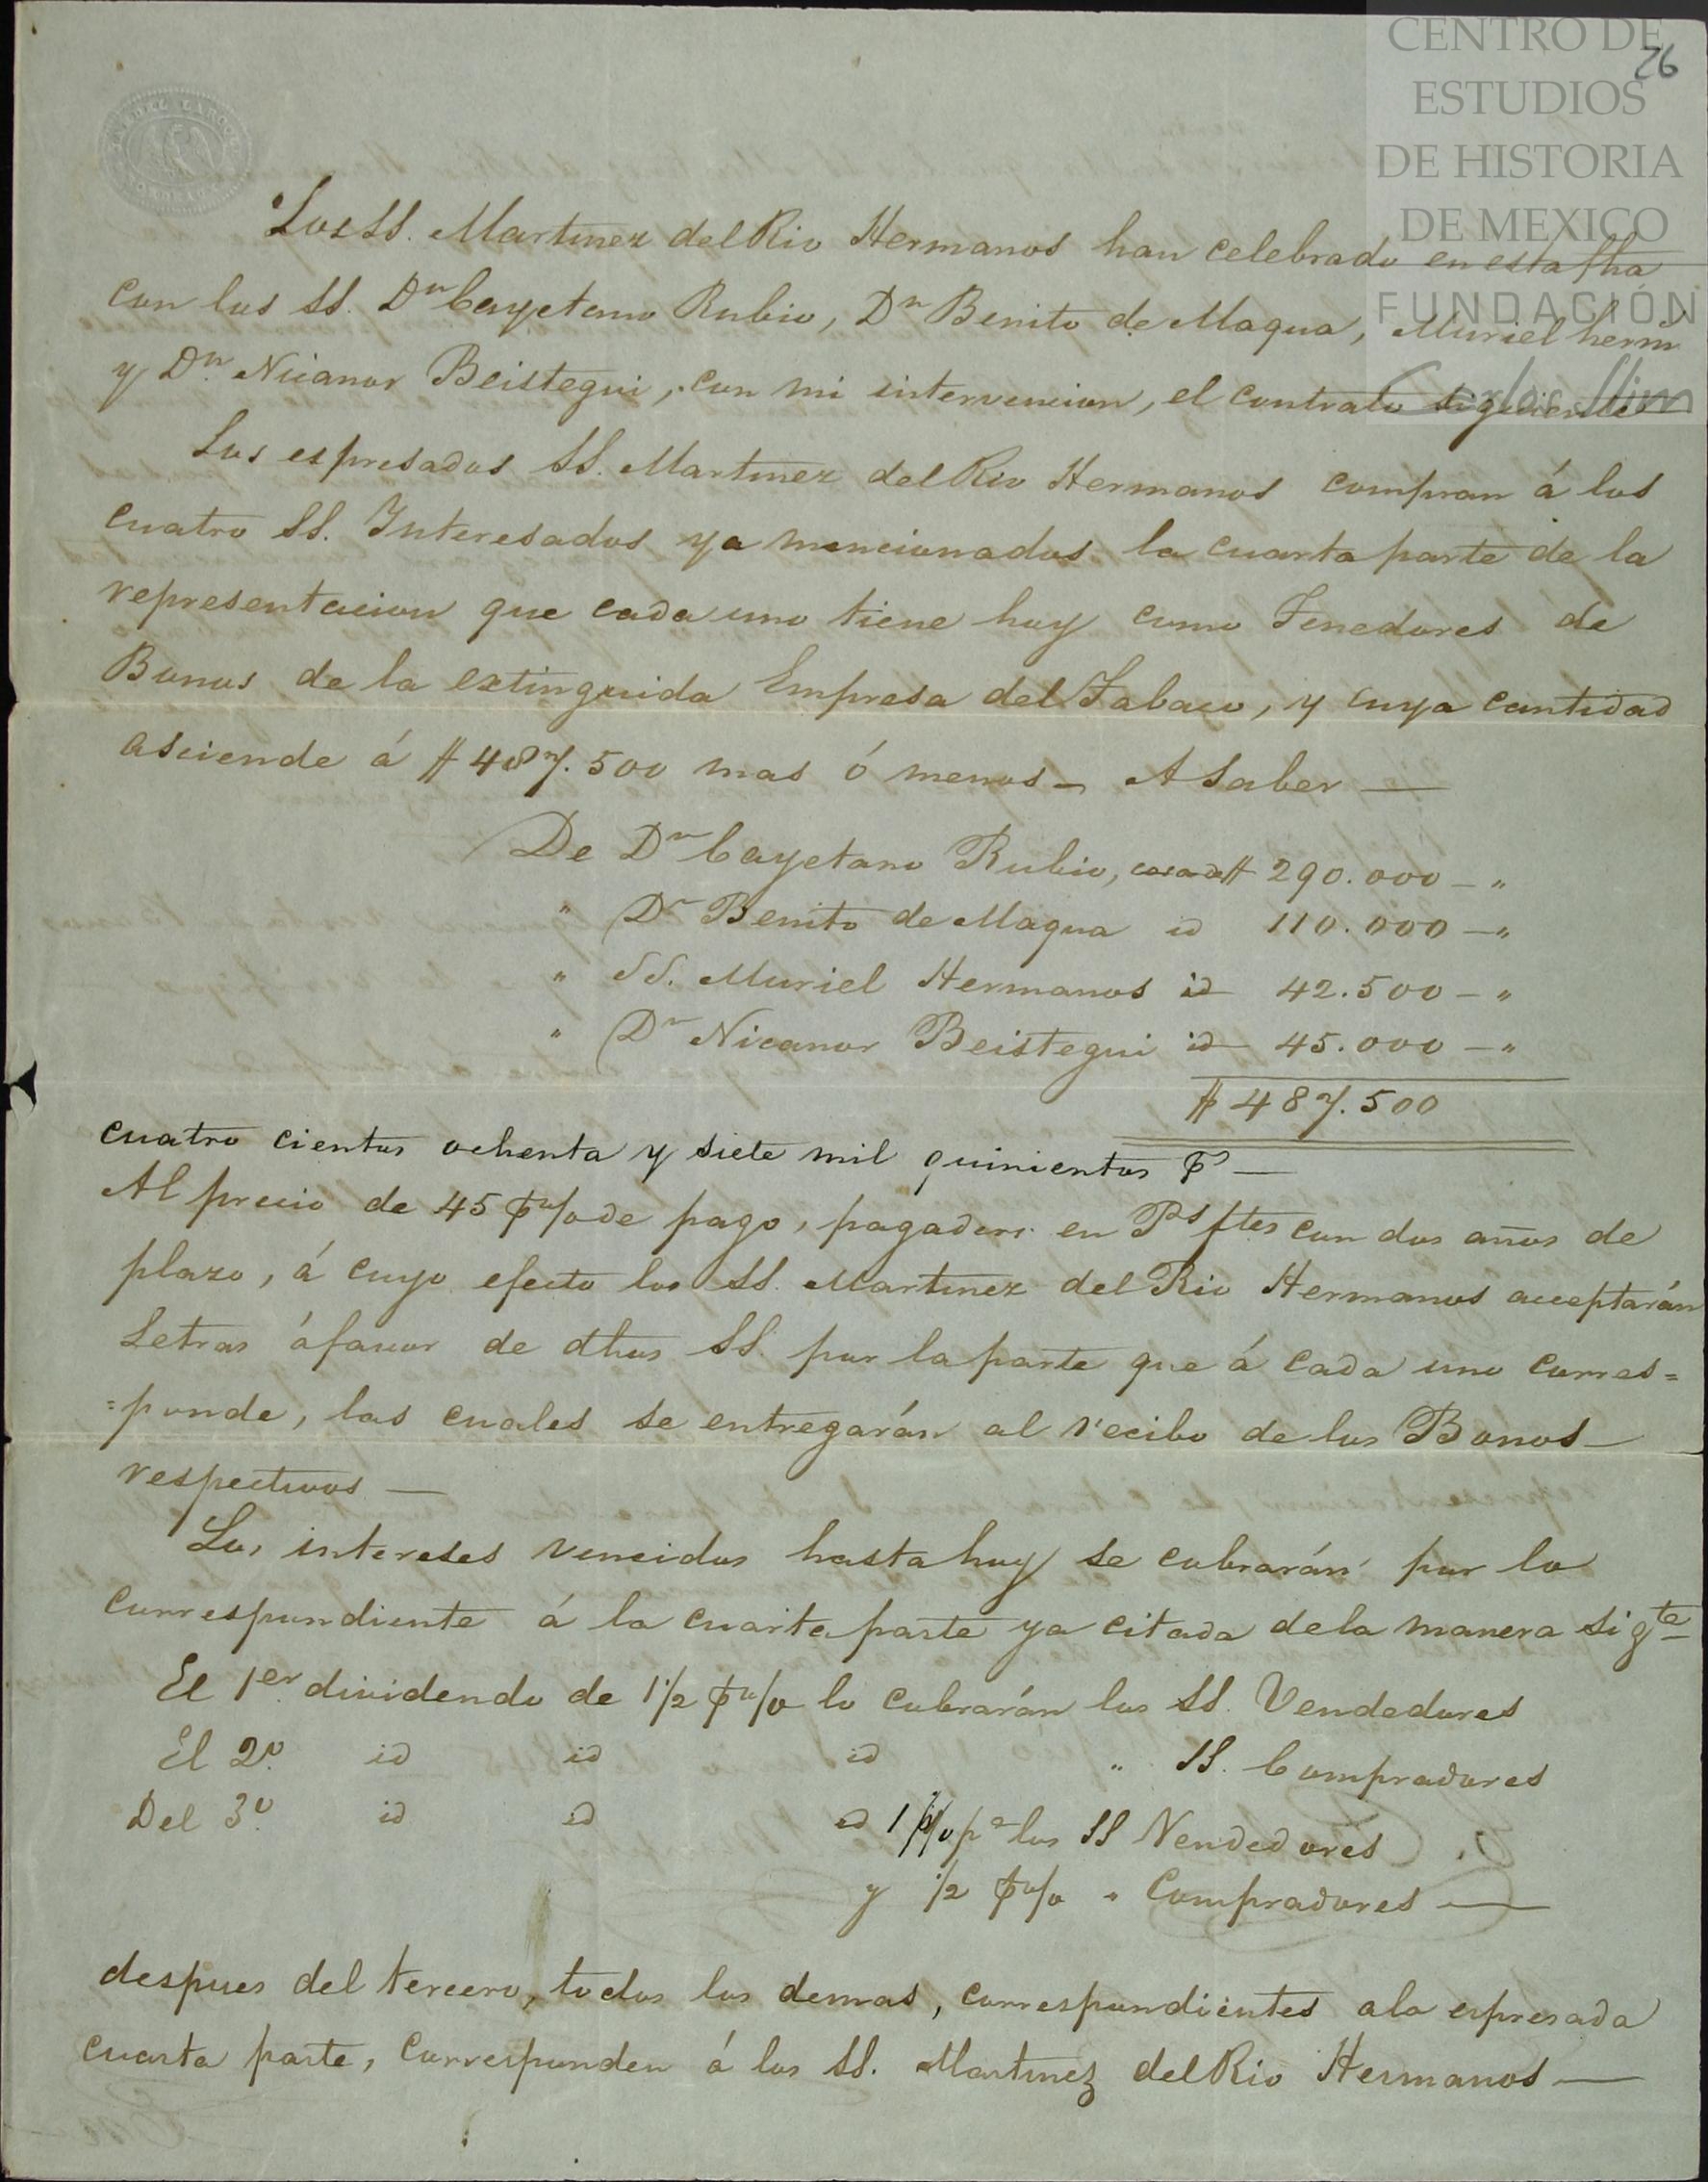 CENTRO DE
ESTUDIOS
DE HISTORIA
DE MEXICO
FUNDACIÓN
Carlos Slim
26
Los SS. Martinez del Rio Hermanos han celebrado en esta fha
con los SS. Dn Cayetano Rubio, Dn Benito de Maqua, Muriel herm
y Dn. Nicanor Beistegui, con mi intervencion, el contrato siguiente
Los espresados SS. Martinez del Rio Hermanos compran á los
cuatro SS. Interesados ya mencionados la cuarta parte de la
representacion que cada uno tiene hoy como Tenedores de
Bonos de la extinguida Empresa del Tabaco, y cuya cantidad
asciende á $ 487.500 mas ó menos — A Saber —
De Dn Cayetano Rubio, $ 290.000 — "
" Dn Benito de Maqua id 110.000 — "
" SS. Muriel Hermanos id 42.500 — "
" Dn Nicanor Beistegui id 45.000 — "
$ 487.500
cuatro cientos ochenta y siete mil quinientos ps —
Al precio de 45 p% de pago, pagadero en Ps ftes con dos años de
plazo, á cuyo efecto los SS. Martinez del Rio Hermanos acceptarán
Letras á favor de dhos SS. por la parte que á cada uno corres=
=ponde, las cuales se entregarán al recibo de los Bonos —
respectivos —
Los intereses vencidos hasta hoy se cobrarán por lo
correspondiente á la cuarta parte ya citada de la manera sigte —
El 1er. dividendo de 1 1/2 p% lo cobrarán los SS. Vendedores
El 2o. id id id " SS. Compradores
Del 3o. id id id 1 p% pa los SS Vendedores
y 1/2 p% " Compradores —
despues del tercero, todos los demas, correspondientes a la espresada
cuarta parte, corresponden á los SS. Martinez del Rio Hermanos —